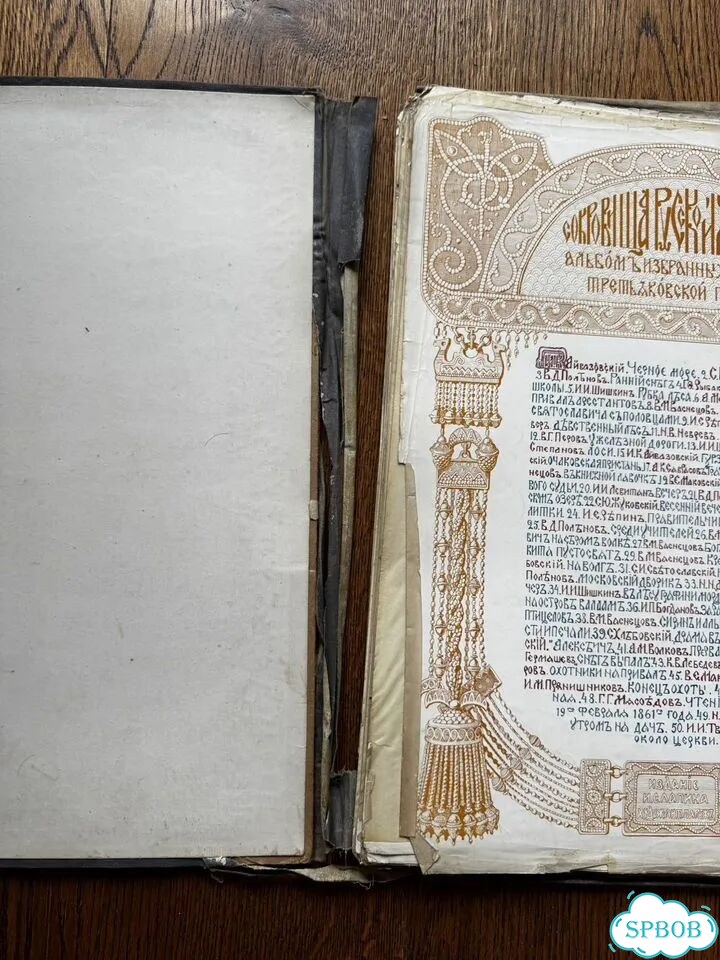 СОКРОВИЩА РУССКО
АЛЬБОМЪ ИЗБРАННЫ
ТРЕТЬЯКОВСКОЙ Г
Айвазовскій. Черное море. 2. С.
3. В.Д. Полѣновъ. Ранній снѣгъ 4. Рыбак
школы. 5. И.И. Шишкинъ. Рубка лѣса. 6. А.
Привалъ арестантовъ. 8. В.М. Васнецовъ.
Святославича съ половцами. 9. И.Е. Рѣп
воръ. Дѣвственный лѣсъ. 11. Н.В. Невревъ.
12. В.Г. Перовъ. У желѣзной дороги. 13. И.И.
Степановъ. Лоси. 15. И.К. Айвазовскій. Гурз
скій. Очаковская пристань. 17. А.К. Саврасовъ.
нецовъ. Въ книжной лавочкѣ. 19. В.Е. Маковскій
вого судьи. 20. И.И. Левитанъ. Вечеръ. 21. В.Д. П
озерѣ. 22. С.Ю. Жуковскій. Весенній вече
литки. 24. И.Е. Рѣпинъ. Правительни
25. В.Д. Полѣновъ. Среди учителей. 26. В.М
вичъ на сѣромъ волкѣ. 27. В.М. Васнецовъ. Бог
кита Пустосвятъ. 29. В.М. Васнецовъ.
бовскій. На Волгѣ. 31. С.И. Свѣтославскій.
Полѣновъ. Московскій дворикъ. 33. Н.Н.
черъ. 34. И.И. Шишкинъ. Въ лѣсу графини Морд
На островѣ Валаамѣ. 36. И.П. Богдановъ. За ра
Птицеловъ. 38. В.М. Васнецовъ. Сиринъ и Аль
сти и печали. 39. С. Хлѣбовскій. Драма въ
скій. Алексѣичъ. 41. А.М. Волковъ. Прова
Гермашевъ. Снѣгъ выпалъ. 43. К.В. Лебедевъ
ровъ. Охотники на привалѣ. 45. В.Е. Мак
И.М. Прянишниковъ. Конецъ охоты.
ная. 48. Г.Г. Мясоѣдовъ. Чтені
19го февраля 1861го года. 49. Н.
утромъ на дачѣ. 50. И.И. Тв
около церкви.
ИЗДАНІЕ
SPBOB